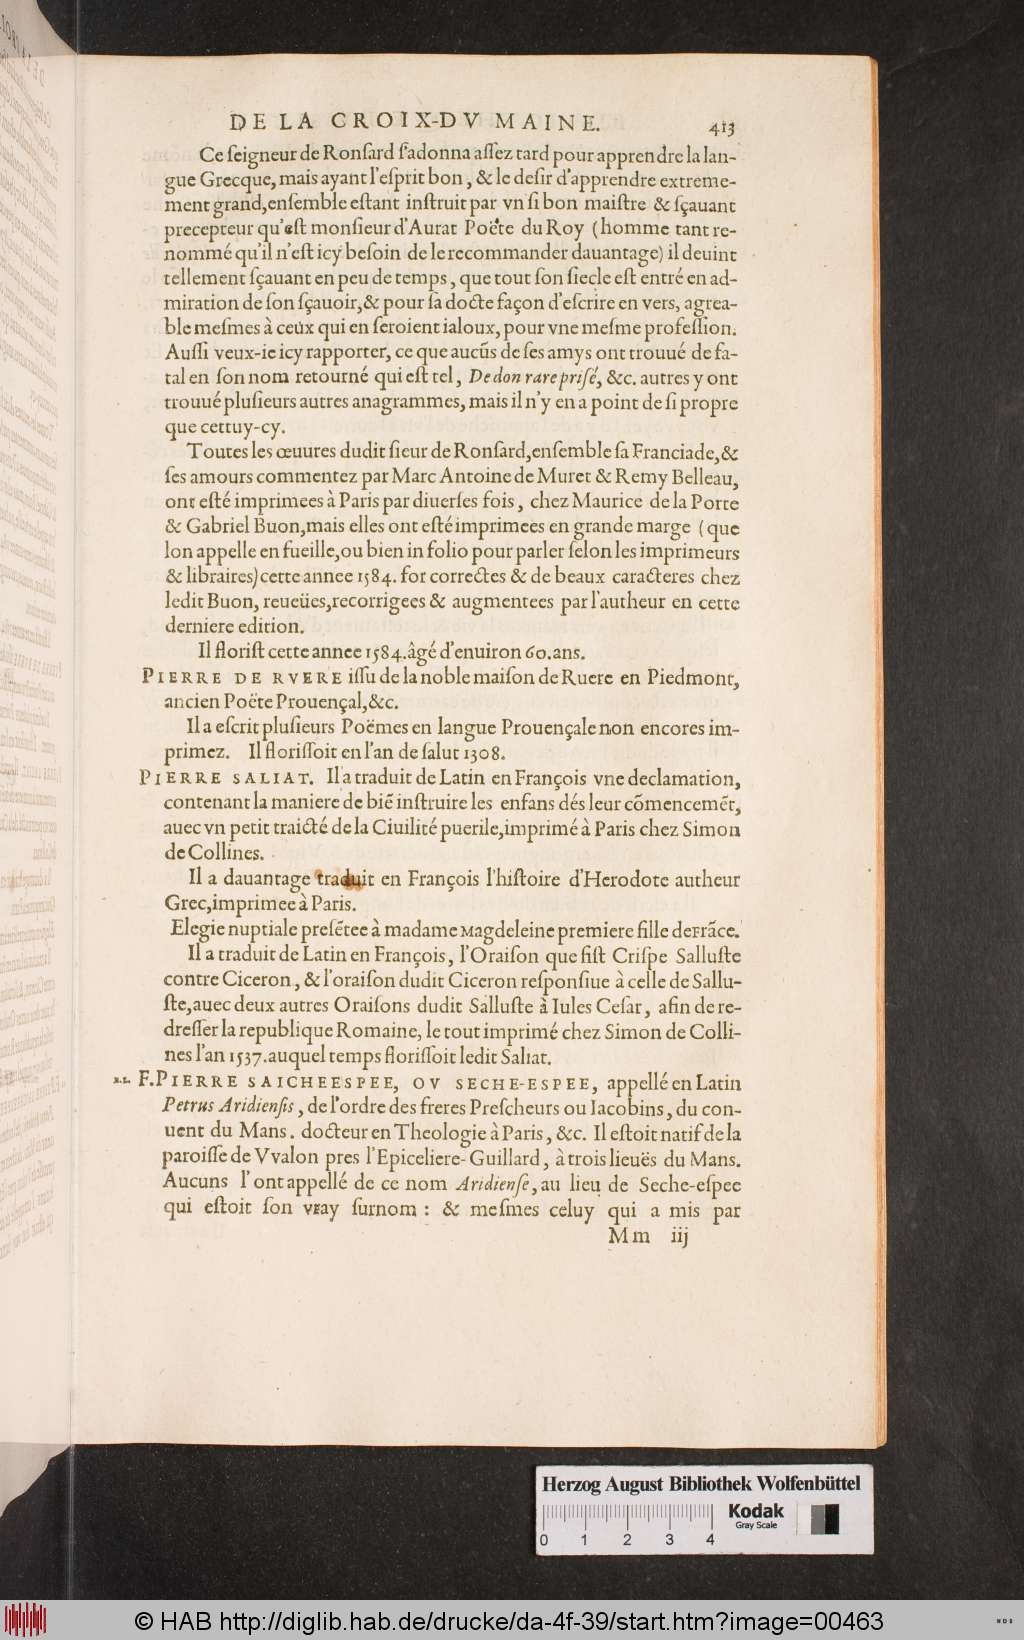 DE LA CROIX-DV MAINE. 413
Ce ſeigneur de Ronſard ſ'adonna aſſez tard pour apprendre la lan-
gue Grecque, mais ayant l'eſprit bon, & le deſir d'apprendre extreme-
ment grand, enſemble eſtant inſtruit par vn ſi bon maiſtre & ſçauant
precepteur qu'eſt monſieur d'Aurat Poëte du Roy (homme tant re-
nommé qu'il n'eſt icy beſoin de le recommander dauantage) il deuint
tellement ſçauant en peu de temps, que tout ſon ſiecle eſt entré en ad-
miration de ſon ſçauoir, & pour ſa docte façon d'eſcrire en vers, agrea-
ble meſmes à ceux qui en ſeroient ialoux, pour vne meſme profeſſion.
Auſſi veux-ie icy rapporter, ce que aucūs de ſes amys ont trouué de fa-
tal en ſon nom retourné qui eſt tel, De don rare priſé, &c. autres y ont
trouué pluſieurs autres anagrammes, mais il n'y en a point de ſi propre
que cettuy-cy.
Toutes les œuures dudit ſieur de Ronſard, enſemble ſa Franciade, &
ſes amours commentez par Marc Antoine de Muret & Remy Belleau,
ont eſté imprimees à Paris par diuerſes fois, chez Maurice de la Porte
& Gabriel Buon, mais elles ont eſté imprimees en grande marge (que
lon appelle en fueille, ou bien in folio pour parler ſelon les imprimeurs
& libraires) cette annee 1584. for correctes & de beaux caracteres chez
ledit Buon, reueües, recorrigees & augmentees par l'autheur en cette
derniere edition.
Il floriſt cette annee 1584. âgé d'enuiron 60. ans.
PIERRE DE RVERE iſſu de la noble maiſon de Ruere en Piedmont,
ancien Poëte Prouençal, &c.
Il a eſcrit pluſieurs Poëmes en langue Prouençale non encores im-
primez. Il floriſſoit en l'an de ſalut 1308.
PIERRE SALIAT. Il a traduit de Latin en François vne declamation,
contenant la maniere de biē inſtruire les enfans dés leur cōmencemēt,
auec vn petit traicté de la Ciuilité puerile, imprimé à Paris chez Simon
de Collines.
Il a dauantage traduit en François l'hiſtoire d'Herodote autheur
Grec, imprimee à Paris.
Elegie nuptiale preſētee à madame Magdeleine premiere fille de Frāce.
Il a traduit de Latin en François, l'Oraiſon que fiſt Criſpe Salluſte
contre Ciceron, & l'oraiſon dudit Ciceron reſponſiue à celle de Sallu-
ſte, auec deux autres Oraiſons dudit Salluſte à Iules Ceſar, afin de re-
dreſſer la republique Romaine, le tout imprimé chez Simon de Colli-
nes l'an 1537. auquel temps floriſſoit ledit Saliat.
F. PIERRE SAICHEESPEE, OV SECHE-ESPEE, appellé en Latin
Petrus Aridienſis, de l'ordre des freres Preſcheurs ou Iacobins, du con-
uent du Mans. docteur en Theologie à Paris, &c. Il eſtoit natif de la
paroiſſe de Vvalon pres l'Epiceliere-Guillard, à trois lieuës du Mans.
Aucuns l'ont appellé de ce nom Aridienſe, au lieu de Seche-eſpee
qui eſtoit ſon vray ſurnom : & meſmes celuy qui a mis par
Mm iij
Herzog August Bibliothek Wolfenbüttel
Kodak
Gray Scale
0 1 2 3 4
© HAB http://diglib.hab.de/drucke/da-4f-39/start.htm?image=00463